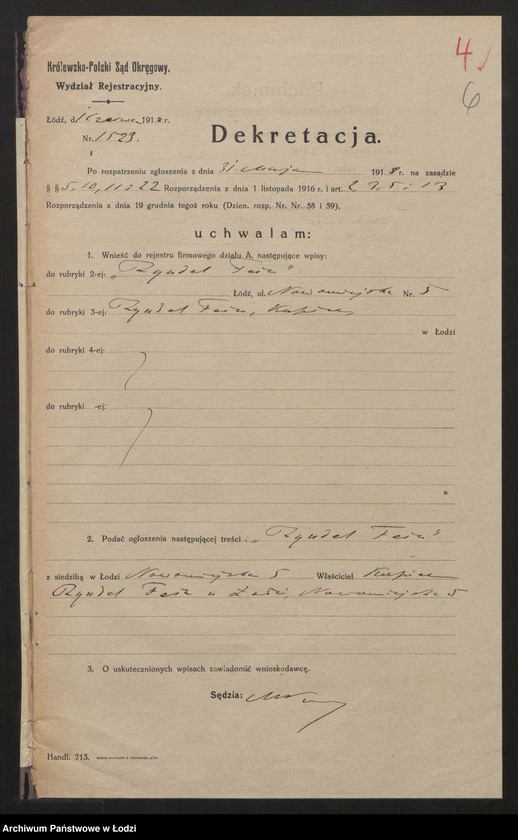 4
6
Królewsko-Polski Sąd Okręgowy.
Wydział Rejestracyjny.
Łódź, d. 1 czerwca 1918 r.
Nr. 1523.
Dekretacja.
Po rozpatrzeniu zgłoszenia z dnia 31 Maja 1918 r. na zasadzie
§ § 5, 10, 11 i 22 Rozporządzenia z dnia 1 listopada 1916 r. i art. 2 3, 5 i 13
Rozporządzenia z dnia 19 grudnia tegoż roku (Dzien. rozp. Nr. Nr. 58 i 59),
uchwalam:
1. Wnieść do rejestru firmowego działu A. następujące wpisy:
do rubryki 2-ej: „Ryndel Fein"
Łódź, ul. Nowomiejska Nr. 5
do rubryki 3-ej: Ryndel Fein, Kupiec
w Łodzi
do rubryki 4-ej:
do rubryki -ej:
2. Podać ogłoszenia następującej treści: „Ryndel Fein"
z siedzibą w Łodzi Nowomiejska 5 Właściciel Kupiec
Ryndel Fein w Łodzi, Nowomiejska 5
3. O uskutecznionych wpisach zawiadomić wnioskodawcę.
Sędzia:
Handl. 713.
Archiwum Państwowe w Łodzi